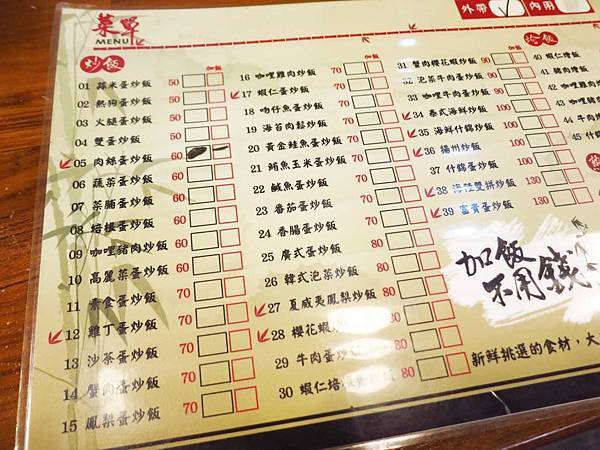 菜單
MENU
外帶 V 內用
炒飯
加飯
01 蒜米蛋炒飯 50
02 熱狗蛋炒飯 50
03 火腿蛋炒飯 50
04 雙蛋炒飯 50
05 肉絲蛋炒飯 60
06 蔬菜蛋炒飯 60
07 菜脯蛋炒飯 60
08 培根蛋炒飯 60
09 咖哩豬肉炒飯 60
10 高麗菜蛋炒飯 60
11 素食蛋炒飯 70
12 雞丁蛋炒飯 70
13 沙茶蛋炒飯 70
14 蟹肉蛋炒飯 70
15 鳳梨蛋炒飯 70
加飯
16 咖哩雞肉炒飯 70
17 蝦仁蛋炒飯 70
18 吻仔魚蛋炒飯 70
19 海苔肉鬆炒飯 70
20 黃金鮭魚蛋炒飯 70
21 鮪魚玉米蛋炒飯 70
22 鹹魚蛋炒飯 70
23 番茄蛋炒飯 70
24 香腸蛋炒飯 70
25 廣式蛋炒飯 70
26 韓式泡菜炒飯 70
27 夏威夷鳳梨炒飯 80
28 櫻花蝦 80
29 牛肉蛋炒飯 80
30 蝦仁培 炒飯 80
加飯
31 蟹肉櫻花蝦炒飯 90
32 泡菜牛肉蛋炒飯 90
33 咖哩牛肉蛋炒飯 90
34 泰式海鮮炒飯 100
35 海鮮什錦炒飯 100
36 揚州炒飯 100
37 什錦蛋炒飯 100
38 海陸雙拼炒飯 130
39 富貴蛋炒飯 130
燴飯
40 蝦仁燴飯
41 豬肉燴
42 咖哩雞肉
43 咖哩豬
44 牛肉
45 什錦
加飯
不用錢
新鮮挑選的食材，大